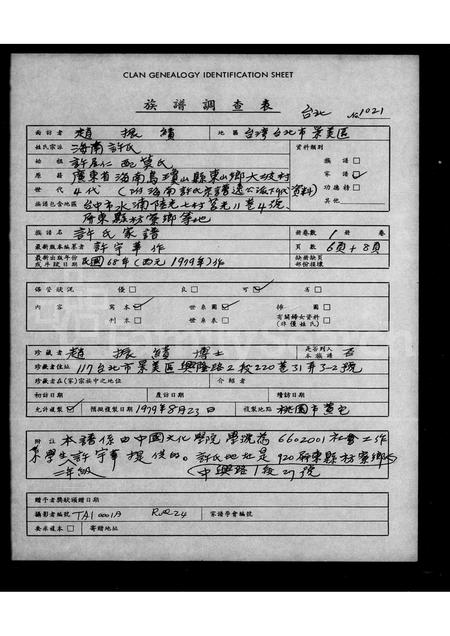 CLAN GENEALOGY IDENTIFICATION SHEET
族譜調查表 台北 №1021
面訪者 趙振績 地區 台灣台北市景美區
姓氏宗派 海南許氏 資料類別
始祖 許居仁配莫氏 族譜
原籍 廣東省海南島瓊山縣東山鄉大坡村 家譜
世代 4代 功德榜
族譜包含地區 台中市水湳陸光七村莒光11巷4號、 其他
屏東縣枋寮鄉等地
族譜名 許氏家譜 冊卷數 1 冊 卷
最新版本編纂者 許宇華作 頁數 6頁+8頁
最新出版年份或年段日期 民國68年(西元1979年)作 缺冊缺頁部份損壞
保管狀況 優 良 可 劣
內容 寫本 世系圖 插圖
刊本 世系表 有關婦女資料(非僅姓氏)
珍藏者 趙振績博士 是否列入本族譜 否
珍藏者住址 117台北市景美區興隆路2段220巷31弄3-2號
珍藏者在(家)宗族中之地位 介紹者
初訪日期 復訪日期 續訪日期
允許複製 預擬複製日期 1979年8月23日 複製地點 桃園市黃宅
附註 本譜係由中國文化學院學號為6602001社會工作
系學生許宇華提供的。許氏地址是920屏東縣枋寮鄉
二年級 中興路1段27號
贈予者獎狀頒贈日期
攝影者編號 TAI 0001A 家譜學會編號
要求複本 寄贈地址